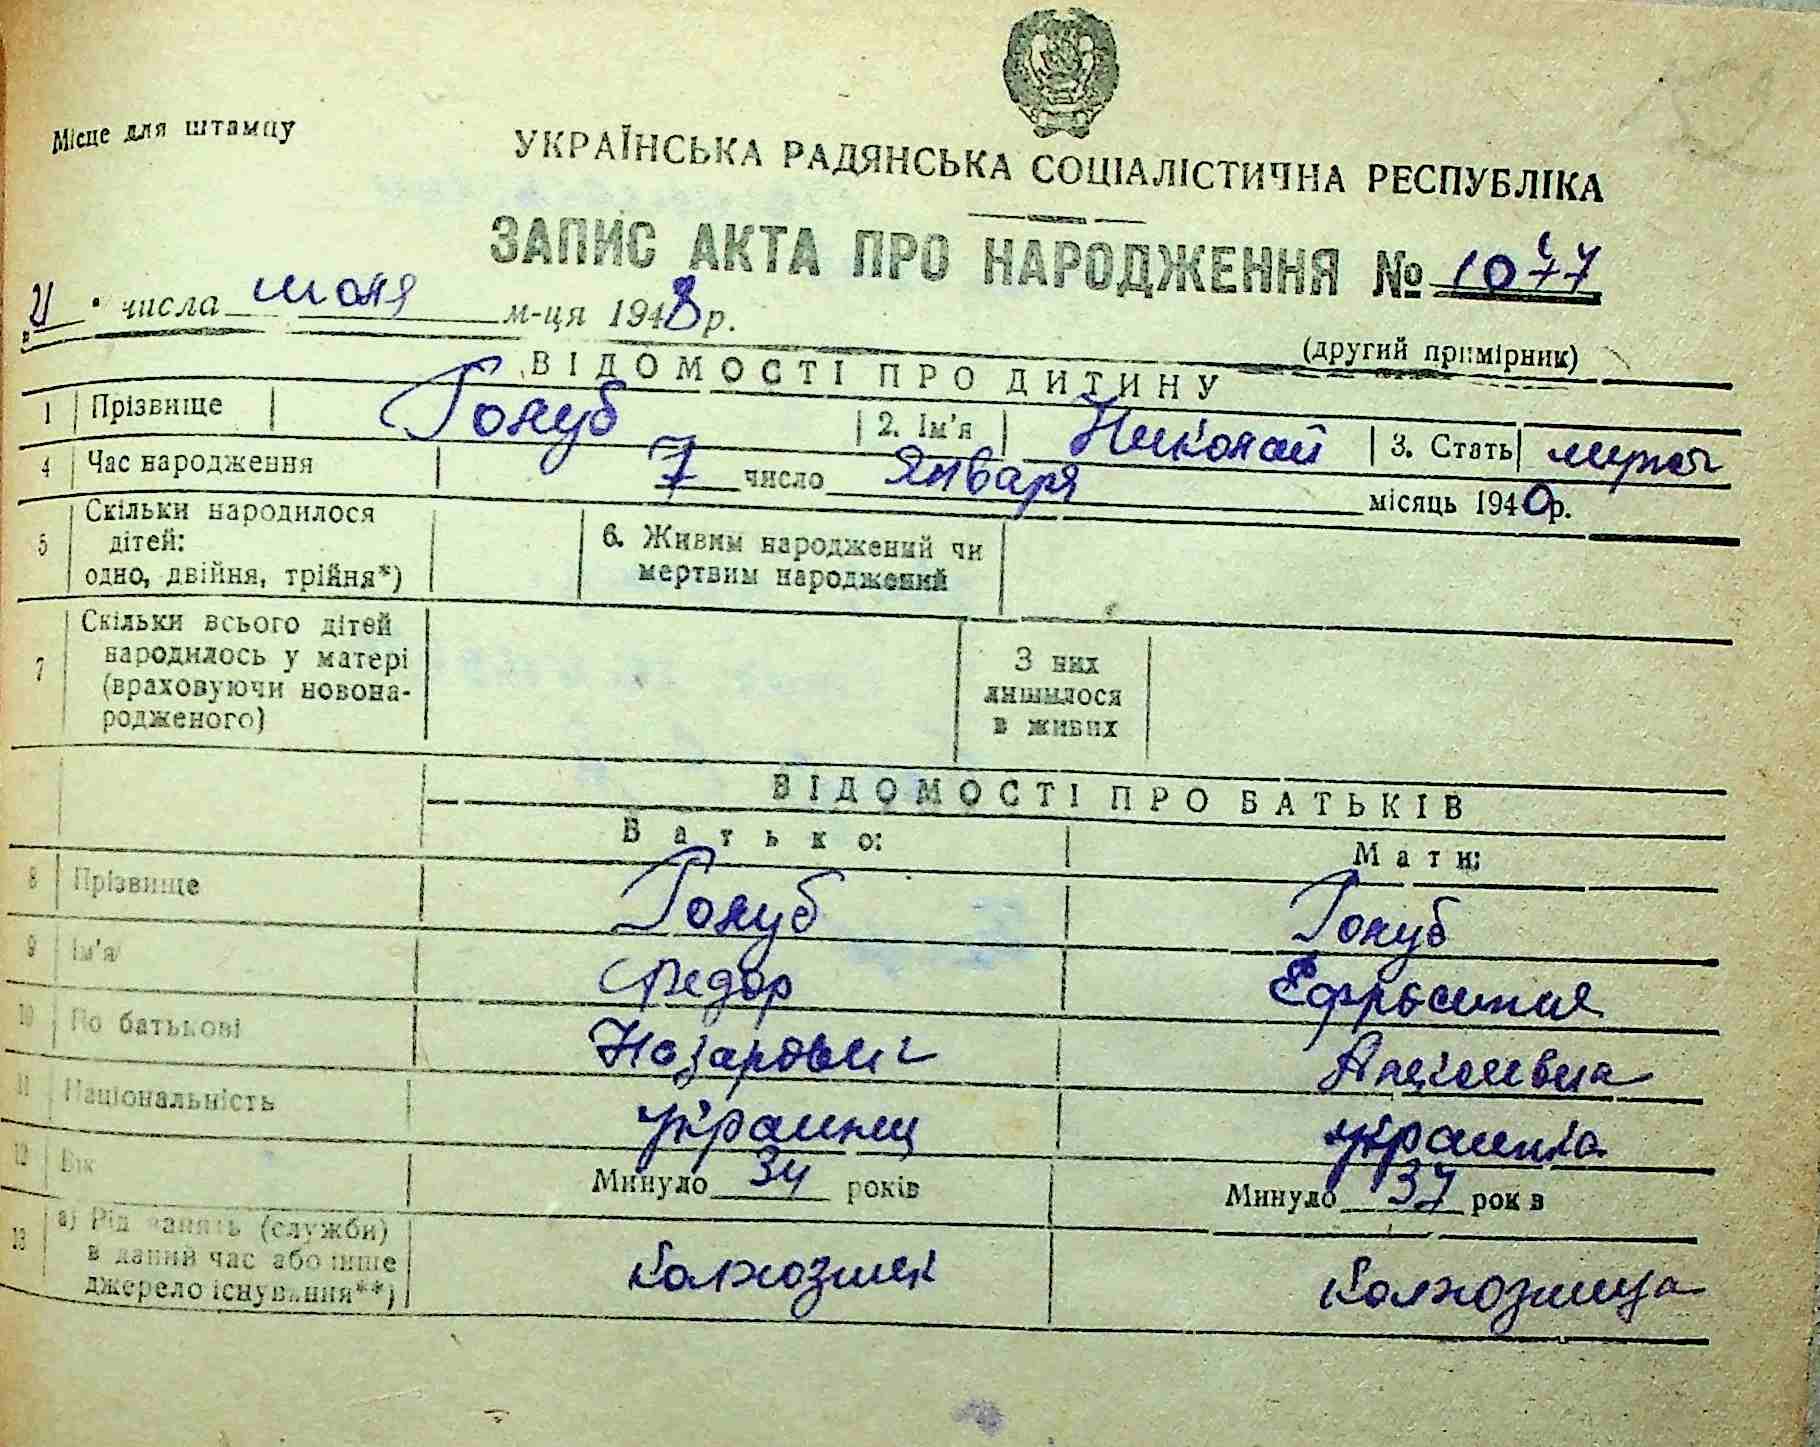 Місце для штампу
УКРАЇНСЬКА РАДЯНСЬКА СОЦІАЛІСТИЧНА РЕСПУБЛІКА
ЗАПИС АКТА ПРО НАРОДЖЕННЯ № 1077
"21" числа июня м-ця 1948 р.
(другий примірник)
ВІДОМОСТІ ПРО ДИТИНУ
1 Прізвище Голуб 2. Ім'я Николай 3. Стать мужск
4 Час народження 7 число Января місяць 1940р.
5 Скільки народилося
дітей:
одно, двійня, трійня*)
6. Живим народжений чи
мертвим народжений
7 Скільки всього дітей
народилось у матері
(враховуючи новона-
родженого)
З них
лишилося
в живих
ВІДОМОСТІ ПРО БАТЬКІВ
Батько: Мати:
8 Прізвище Голуб Голуб
9 Ім'я Федор Ефросиния
10 По батькові Назарович Алексеевна
11 Національність украинец украинка
12 Вік Минуло 34 років Минуло 37 рок в
13 а) Рід занять (служби)
в даний час або інше
джерело існування**)
колхозник колхозница